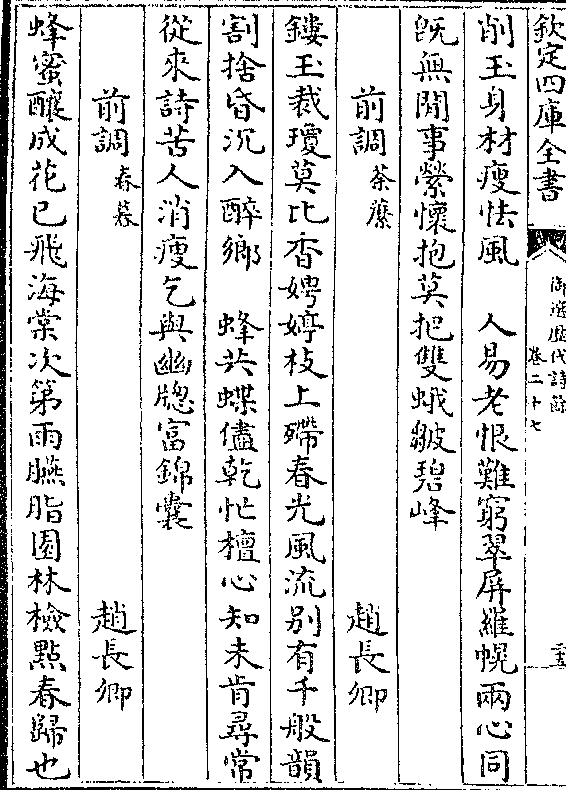 欽定四庫全書
御選歷代詩餘
卷二十七
二五
削玉身材瘦怯風　人易老恨難窮翠屏羅幌兩心同
旣無閒事縈懷抱莫把雙蛾皺碧峰
前調荼䕷　趙長卿
鏤玉裁瓊莫比香娉婷枝上殢春光風流别有千般韻
割捨昏沉入醉鄉　蜂共蝶儘乾忙檀心知未肯尋常
從來詩苦人消瘦乞與幽牕富錦囊
前調春暮　趙長卿
蜂蜜釀成花已飛海棠次第雨臙脂園林檢點春歸也